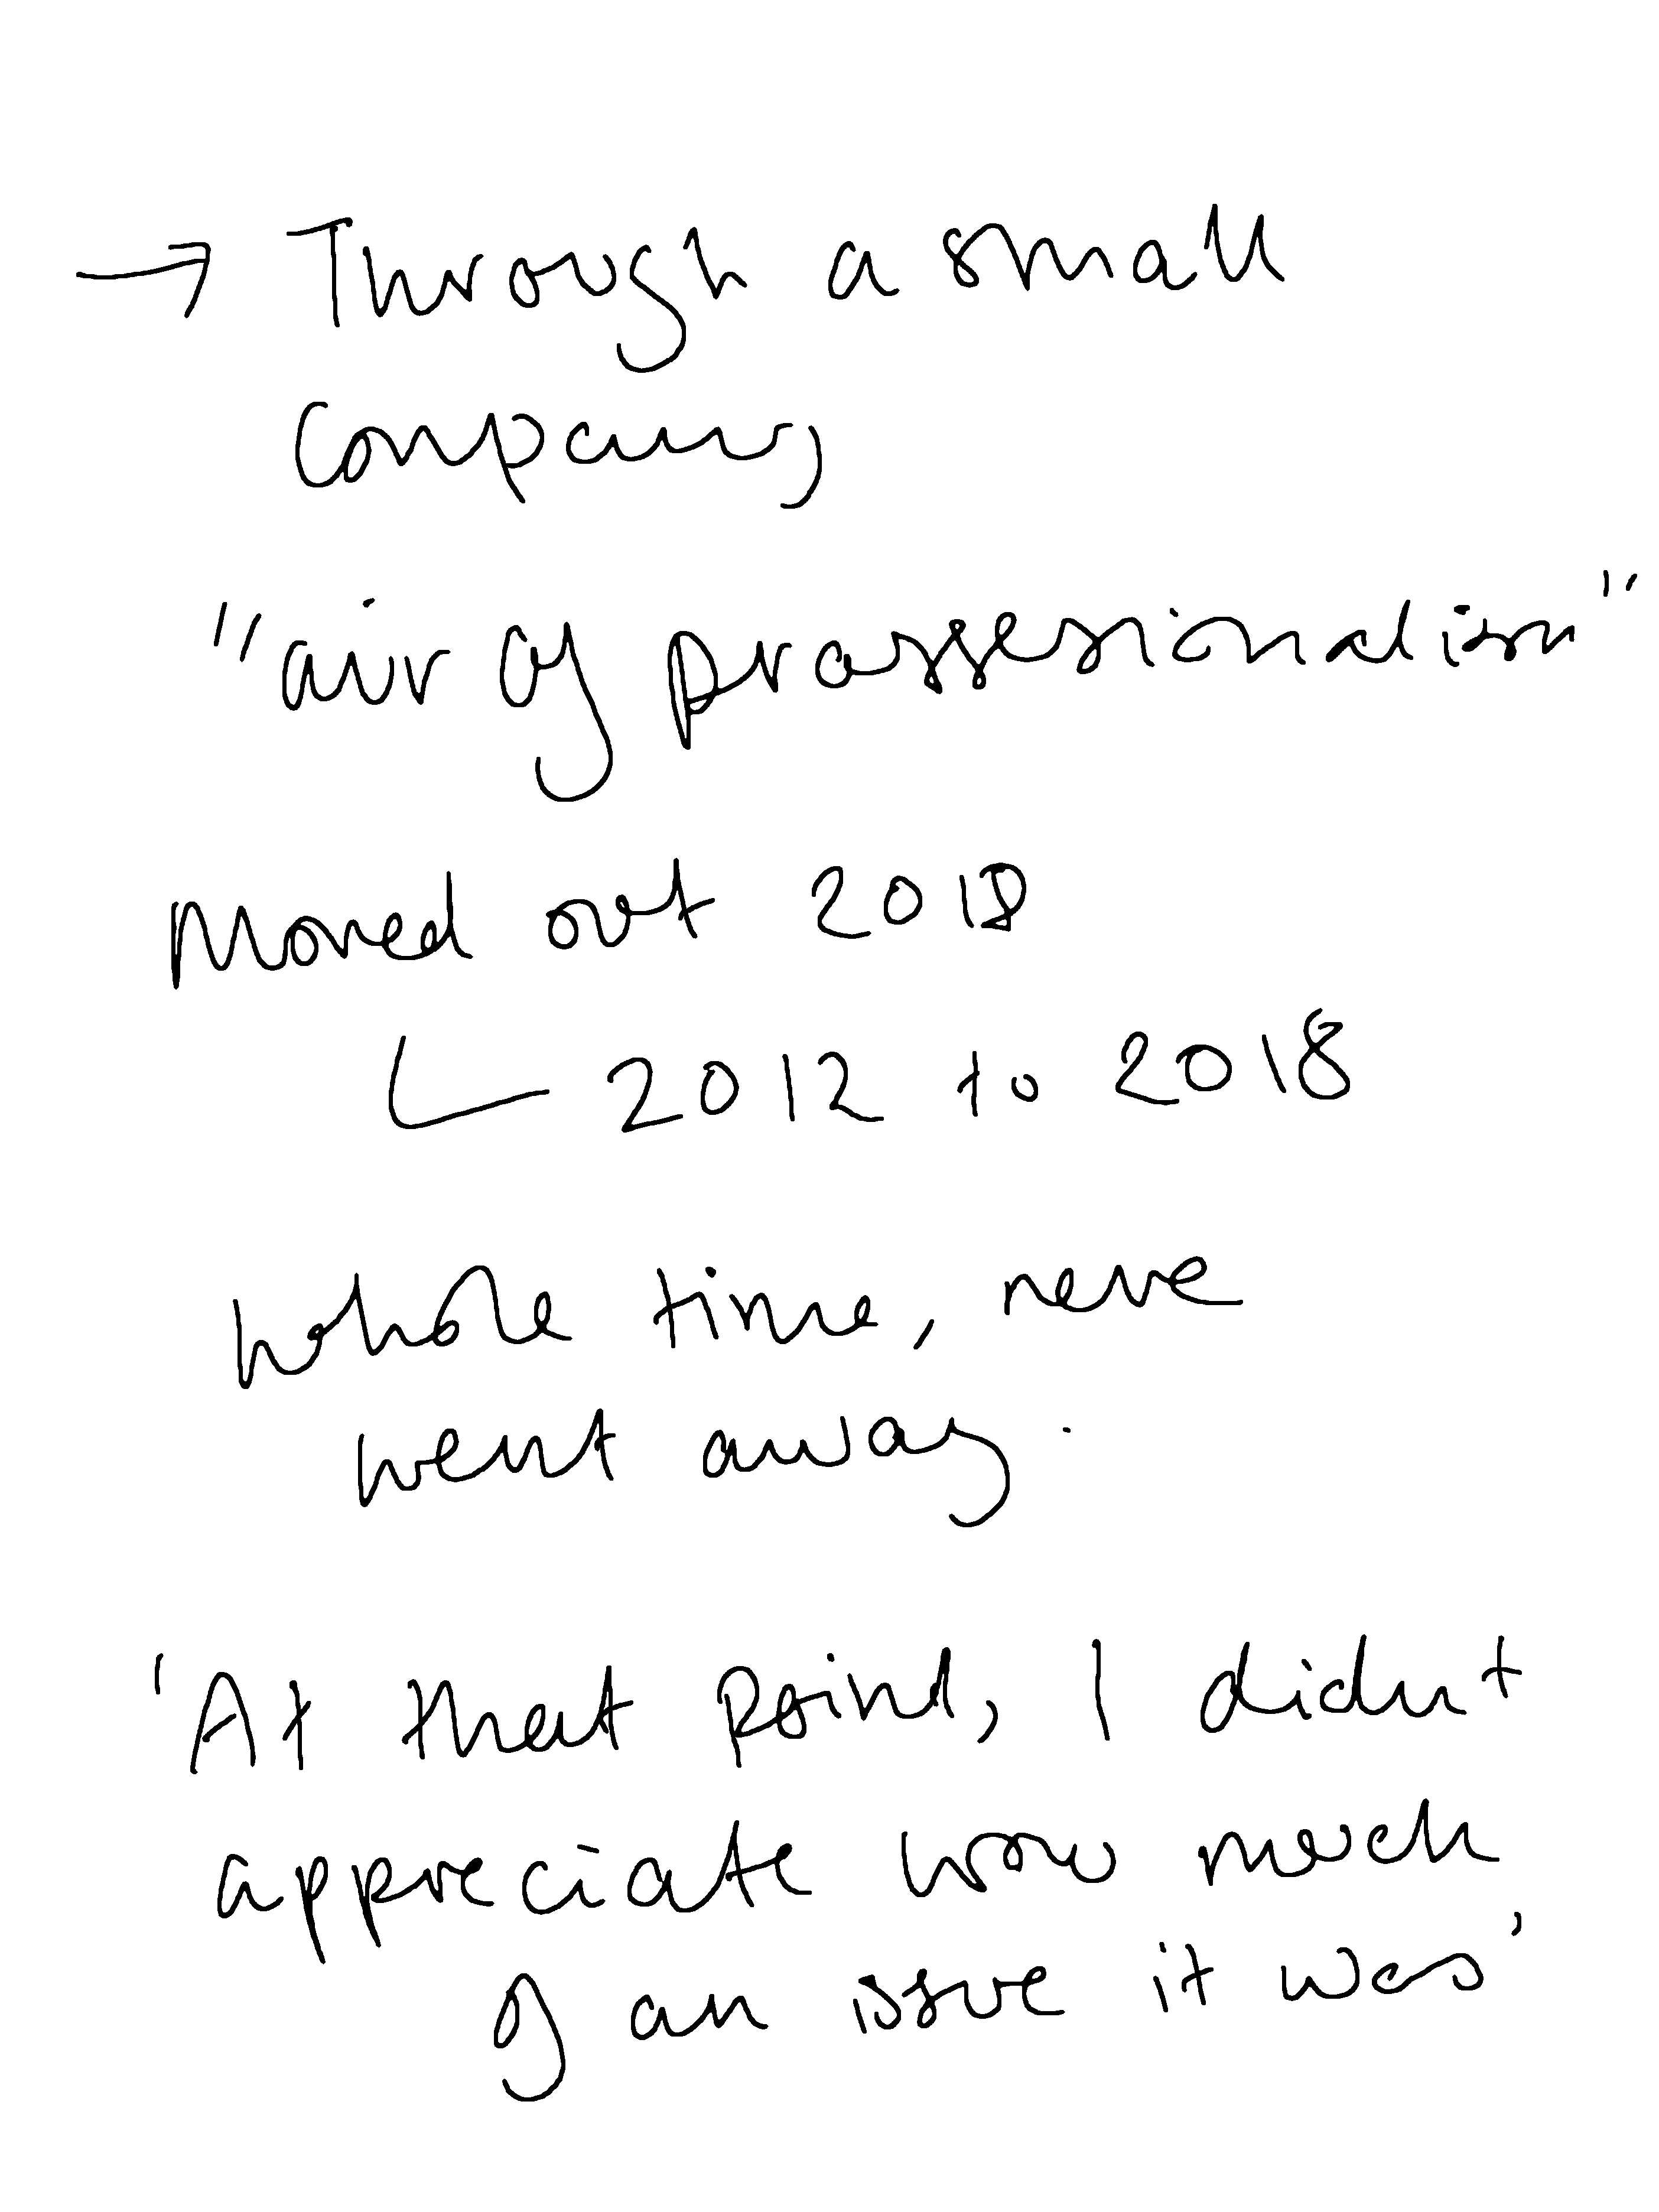 → Through a small
company
"air of professionalism"
Moved out 2018
2012 to 2018
whole time, neve
went away.
'At that point, I didnt
appreciate how much
of an issue it was'